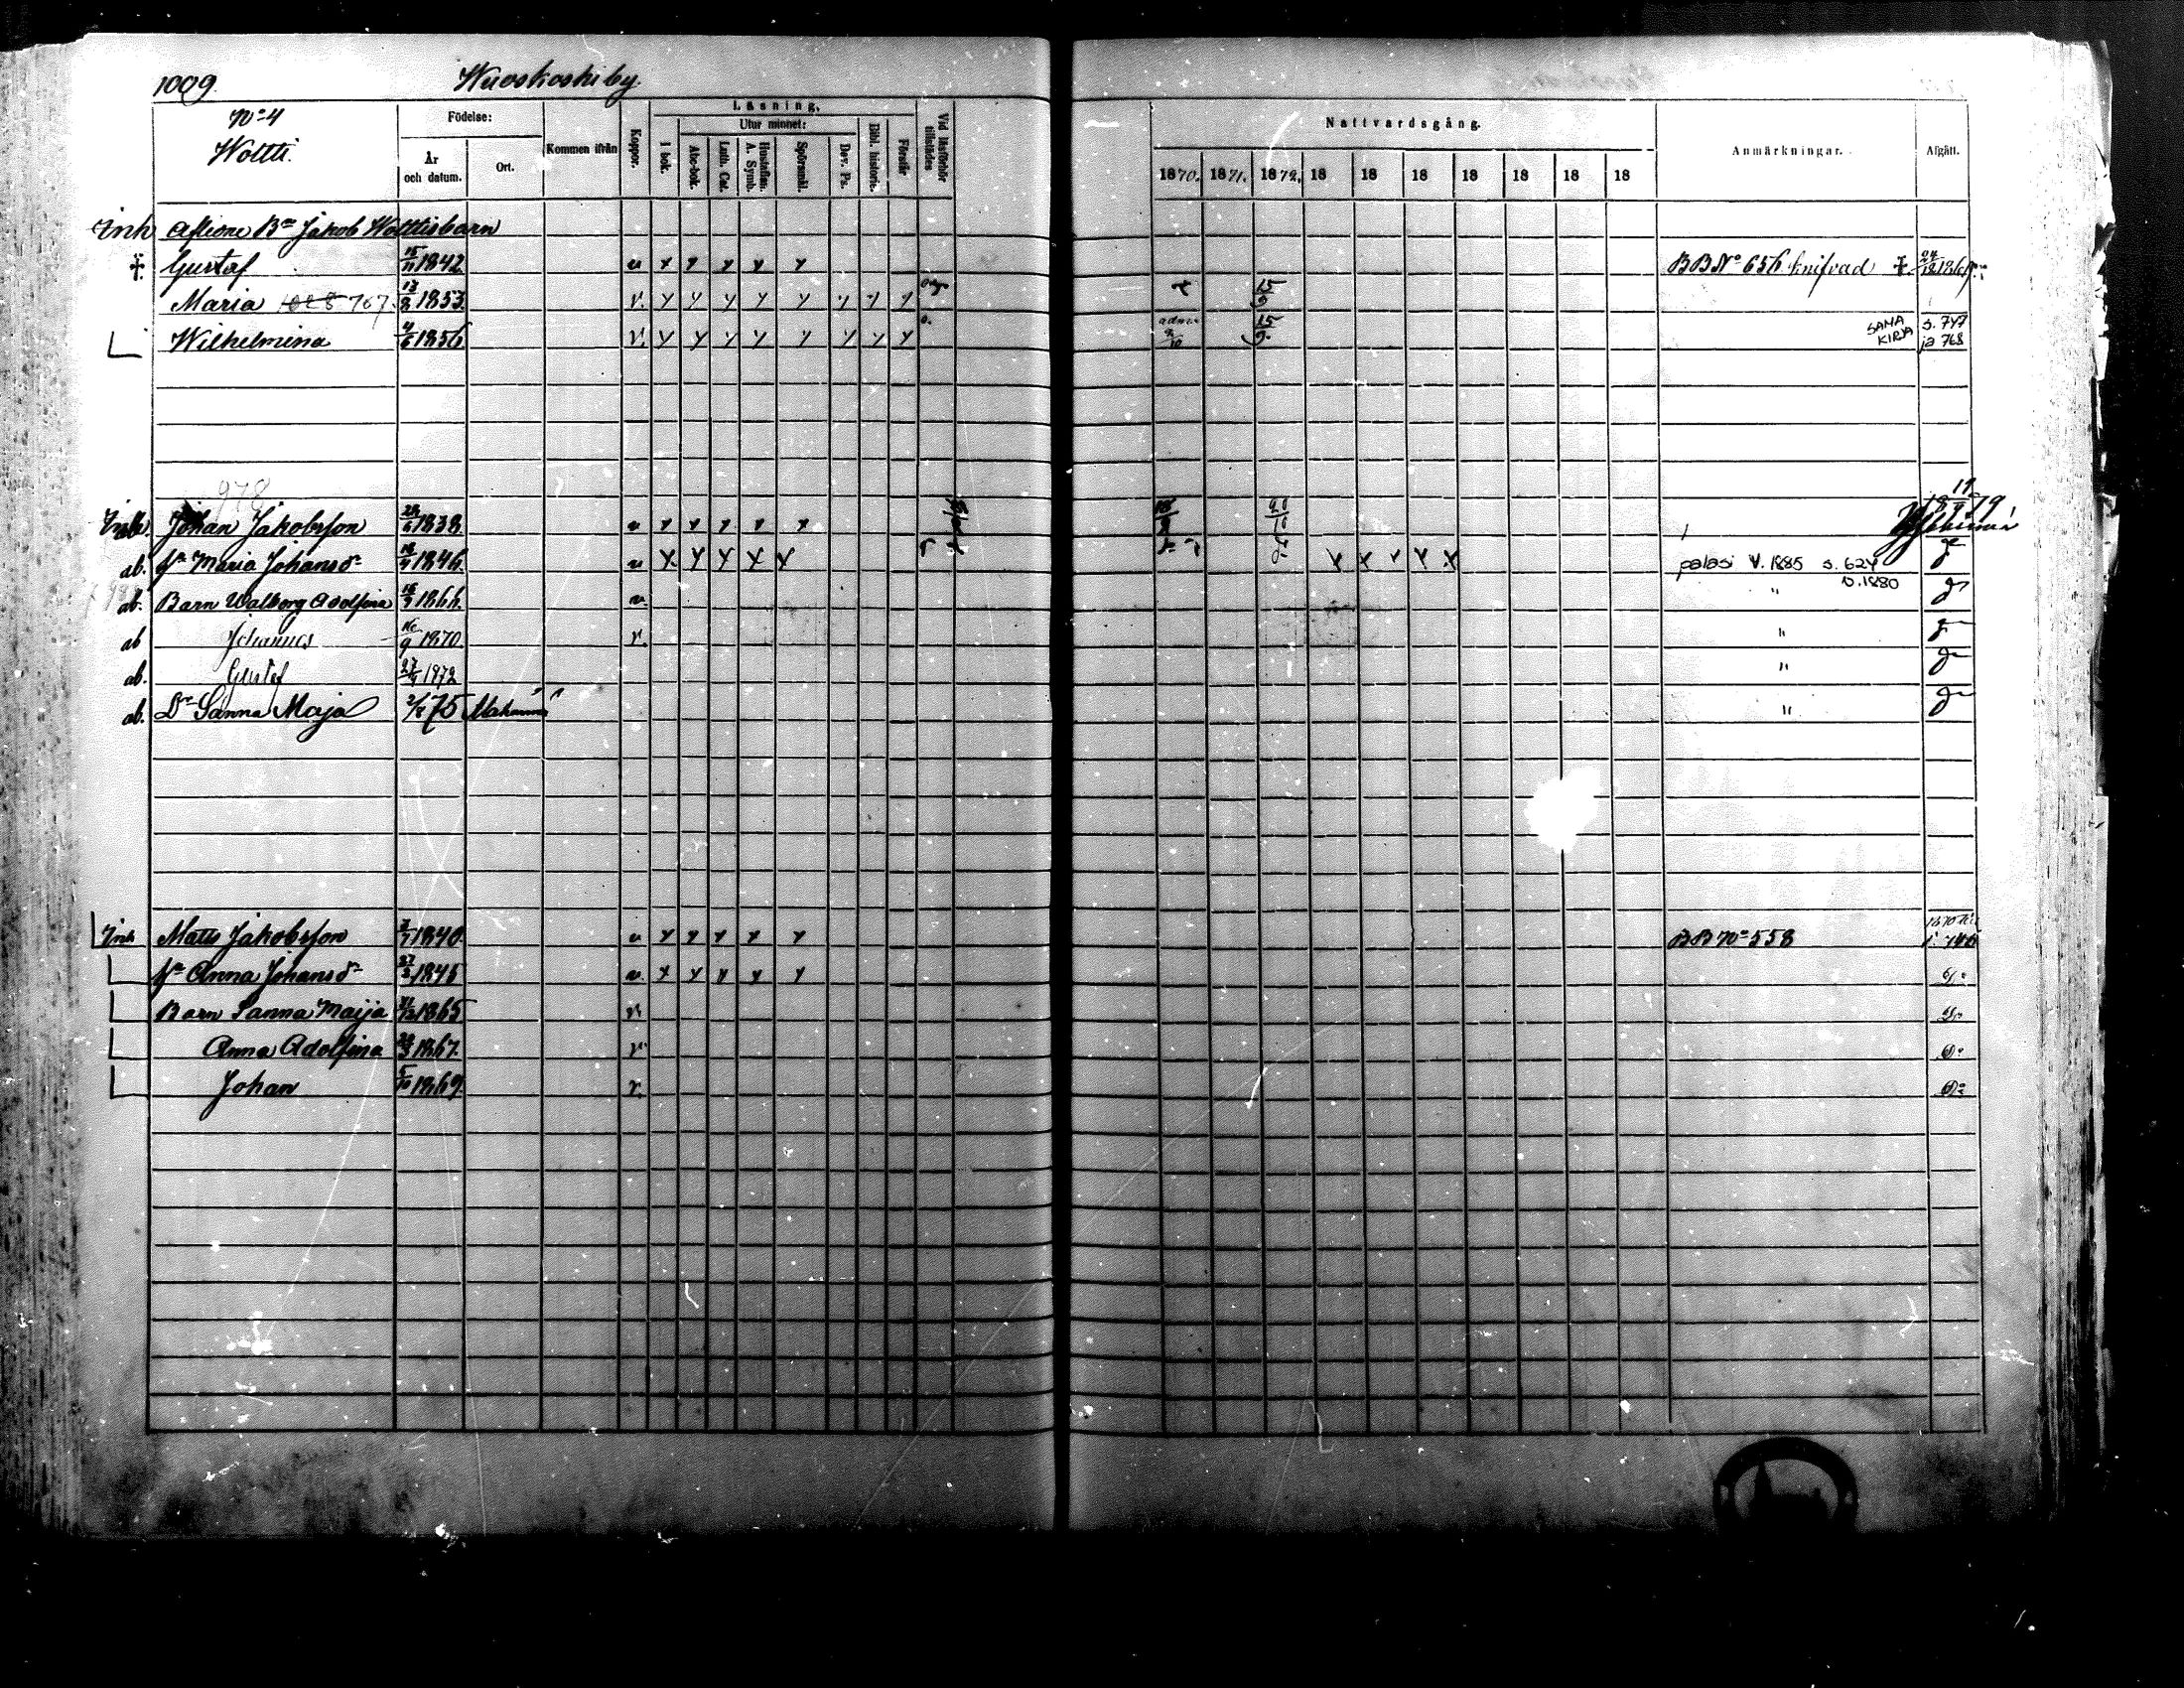 1009. Wuoskoski by.
No 4
Woltti.
Födelse:
År
och datum.
Ort.
Kommen ifrån
Koppor.
Läsning.
I bok.
Utur minnet:
Abc-bok.
Luth. Cat.
Hustaflan
A. Symb.
Spörsmål.
Dav. Ps.
Bibl. historie.
Förstår
Vid läsförhör
tillstädes
Nattvardsgång.
1870. 1871. 1872. 18 18 18 18 18 18 18
Anmärkningar.
Afgått.
Inh Aflidne Bn Jakob Wolttis barn
† Gustaf 15/11 1842. v x y y y y BB No 656 knifvad † 24/12 1869
Maria 1028 767. 13/2 1853. v. y y y y y y y y x 15/9
Wilhelmina 4/6 1856. v. y y y y y y y y adm. 15/9. SANA KIRJA s. 747 ja 768
978
Inh. Johan Jakobsson 1838. v y y y y y 18/9 20/10 1879
ab. Hu Maria Johansdr 1846. v x y y x y y x v y x palasi V. 1885 s. 624
v. 1880
ab. Barn Walborg Adolfina 16/9 1866. v. "
ab Johannes 16/9 1870. v. "
ab. Gustaf 1872 "
ab. Dr Sanna Maja 75 "
Inh Matts Jakobsson 3/7 1840. v x y y y y BB No 558
Hu Anna Johansdr 27/3 1845 v. x x y y y
Barn Sanna Maija 21/12 1865 v
Anna Adolfina 1867. v
Johan 5/10 1869. v.